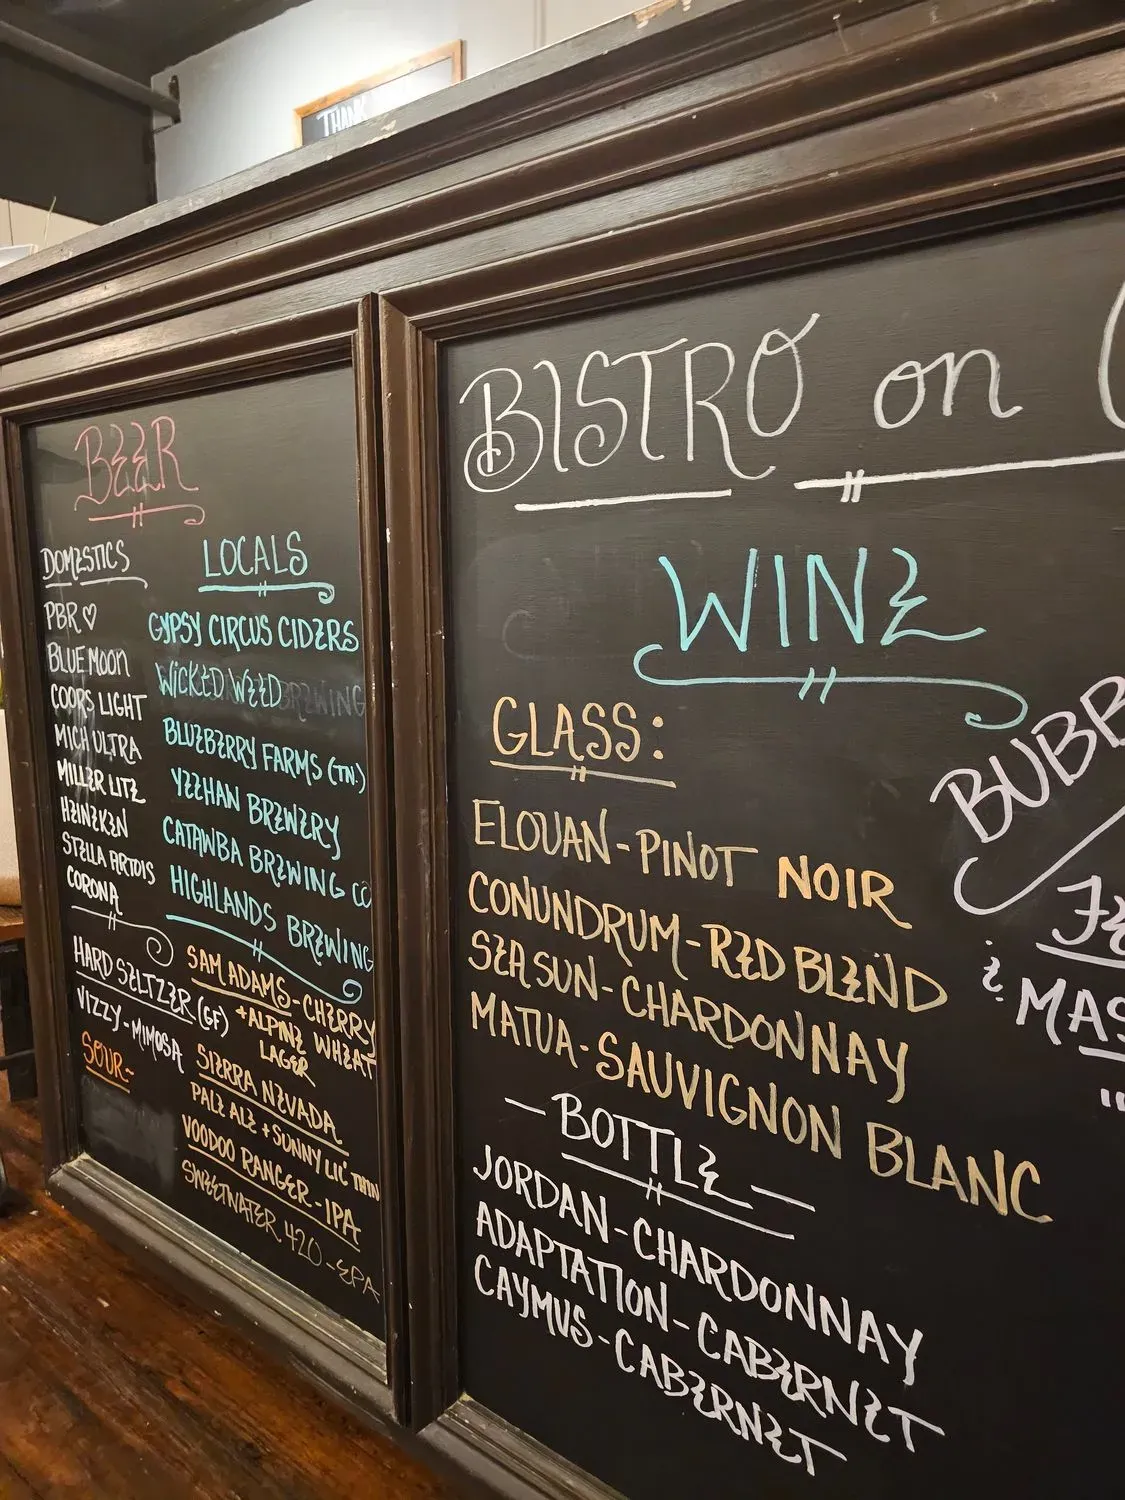 THANK
BEER
DOMESTICS
PBR ♡
BLUE MOON
COORS LIGHT
MICH ULTRA
MILLER LITE
HEINEKEN
STELLA ARTOIS
CORONA
HARD SELTZER (GF)
VIZZY - MIMOSA
SOUR~
LOCALS
GYPSY CIRCUS CIDERS
WICKED WEED BREWING
BLUEBERRY FARMS (TN.)
YEEHAN BREWERY
CATAWBA BREWING CO
HIGHLANDS BREWING
SAM ADAMS - CHERRY
+ ALPINE WHEAT
LAGER
SIERRA NEVADA
PALE ALE + SUNNY LIL'
VOODOO RANGER - IPA
SWEETWATER 420 - EPA
BISTRO on
WINE
GLASS:
ELOUAN - PINOT NOIR
CONUNDRUM - RED BLEND
SEA SUN - CHARDONNAY
MATUA - SAUVIGNON BLANC
— BOTTLE —
JORDAN - CHARDONNAY
ADAPTATION - CABERNET
CAYMUS - CABERNET
BUBB
& MAS